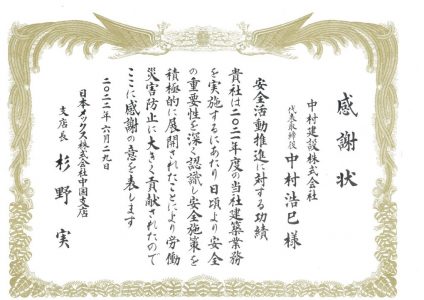 感謝状
中村建設株式会社
代表取締役 中村浩巳様
安全活動推進に対する功績
貴社は二〇二一年度の当社建築業務
を実施するにあたり日頃より安全
の重要性を深く認識し安全施策を
積極的に展開されたことにより労働
災害防止に大きく貢献されたので
ここに感謝の意を表します
二〇二二年六月二九日
日本メックス株式会社中国支店
支店長 杉野 実